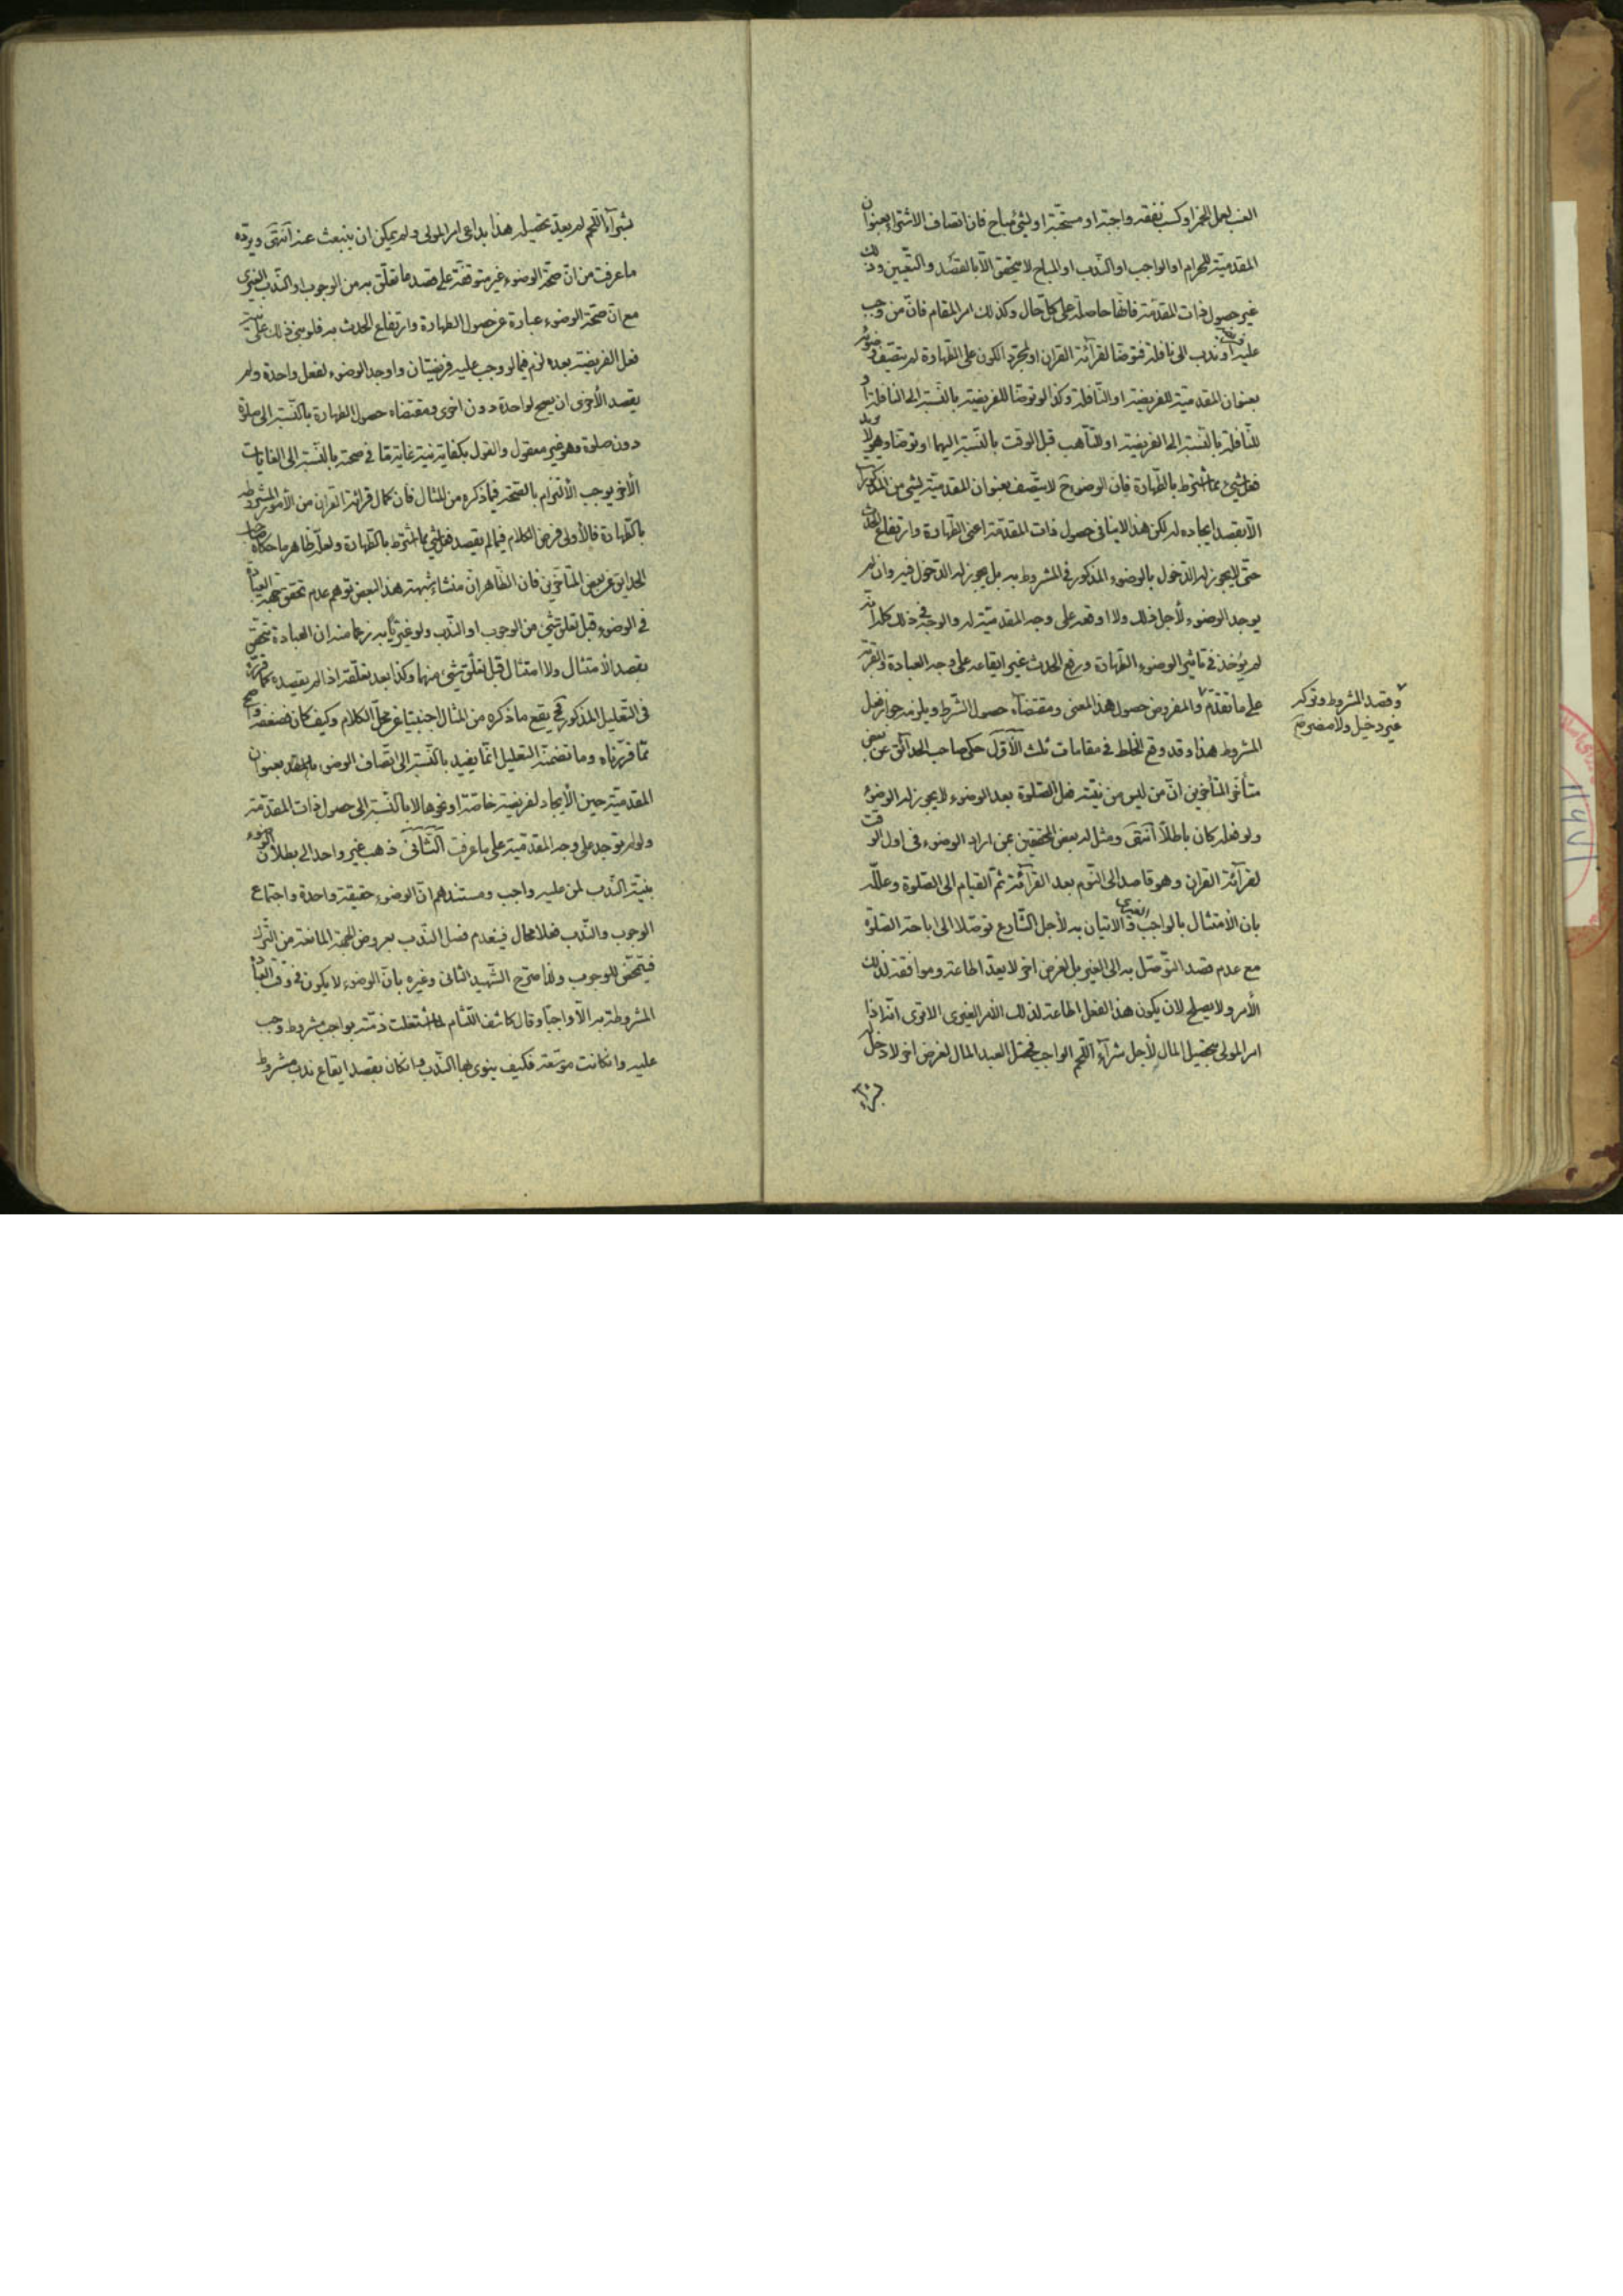 العنب لعمل الخمر او كسب نفقة واجبة او مستحبة او لشئ مباح فان اتصاف الاشتراء بعنوان
المقدميّة للحرام او الواجب او النّدب او المباح لا يتحقق الّا بالقصد والتّعيين وذلك
غير حصول ذات المقدّمة فانّها حاصلة على كلّ حال وكذلك امر المقام فانّ من وجب
عليه او ندب الى نافلة فتوضّأ لقرآئة القران او لمجرّد الكون على الطّهارة لم يتّصف وضوئه
بعنوان المقدميّة للفريضة او النّافلة وكذا لو توضّأ للفريضة بالنّسبة الى النافلة او
للنّافلة بالنّسبة الى الفريضة او للتّأهب قبل الوقت بالنّسبة اليهما او توضّأ وهو لا يريد
فعل شئ ممّا اشترط بالطّهارة فانّ الوضوء ح لا يتّصف بعنوان المقدميّة لشئ من المذكورات
الّا بقصد ايجاده له لكن هذا لا ينافى حصول ذات المقدّمة اعنى الطّهارة وارتفاع الحدث
حتّى لا يجوز له الدّخول بالوضوء المذكور فى المشروط به بل يجوز له الدّخول فيه وان لم
يوجد الوضوء لأجل ذلك ولا اوقعه على وجه المقدميّة له والوجه فى ذلك كلّه انّه
لم يؤخذ فى تاثير الوضوء الطّهارة ورفع الحدث غير ايقاعه على وجه العبادة والقربة
على ما تقدّم والمفروض حصول هذا المعنى ومقتضاه حصول الشّرط ويلزمه جواز فعل
وقصد المشروط وتركه
غير دخيل ولا مضرّ صح
المشروط هذا وقد وقع الخلط فى مقامات ثلث الأوّل حكى صاحب الحدائق عن بعض
متأخّرى المتأخّرين انّ من ليس من نيّته فعل الصّلوة بعد الوضوء لا يجوز له الوضوء
ولو فعله كان باطلاً انتهى ومثل له بعض المحققين بمن اراد الوضوء فى اول الوقت
لقرآئة القران وهو قاصد الى النّوم بعد القرآئة ثمّ القيام الى الصّلوة وعلّله
بان الأمتثال بالواجب الغيرى الاتيان به لأجل الشّارع توصّلا الى اباحة الصّلوة
مع عدم قصد التّوصّل به الى الغير بل لغرض اخر لا يعدّ اطاعة وموافقة لذلك
الأمر ولا يصلح لان يكون هذا الفعل اطاعة لذلك الامر الغيرى الا ترى انّه اذا
امر المولى بتحصيل المال لأجل شرآء اللّحم الواجب فحصّل العبد المال لغرض اخر لا دخل له
بشرآء
بشرآء اللّحم لم يعدّ تحصيله هذا بداعى امر المولى ولم يمكن ان ينبعث عنه انتهى ويردّه
ما عرفت من انّ صحّة الوضوء غير متوقفة على قصد ما تعلّق به من الوجوب او النّدب الغيرى
مع انّ صحّة الوضوء عبارة عن حصول الطهارة وارتفاع الحدث به فلو بنى ذلك على نيّة
فعل الفريضة بعده لزم فيما لو وجب عليه فريضتان واوجد الوضوء لفعل واحدة ولم
يقصد الأخرى ان يصح لواحدة دون اخرى ومقتضاه حصول الطهارة بالنّسبة الى صلوة
دون صلوة وهو غير معقول والقول بكفاية نيّة غاية مّا فى صحته بالنّسبة الى الغايات
الأخر يوجب الألتزام بالصّحة فيما ذكره من المثال فان كمال قرائة القران من الأمور المشروطة
بالطّهارة فالأولى فرض الكلام فيما لم يقصد فعل شئ ممّا اشترط بالطّهارة ولعلّه ظاهر ما حكاه صاحب
الحدايق عن بعض المتأخّرين فان الظّاهر انّ منشاء شبهة هذا البعض توهم عدم تحقق جهة العبادة
فى الوضوء قبل تعلّق شئ من الوجوب او النّدب ولو غيريّاً به زعما منه ان العبادة تتحقق
بقصد الأمتثال ولا امتثال قبل تعلّق شئ منهما وكذا بعد تعلّقه اذا لم يقصده كما قرّره
فى التّعليل المذكور فح يقع ما ذكره من المثال اجنبيّا عن محلّ الكلام وكيف كان فضعفه واضح
ممّا قرّرناه وما تضمّنه التعليل انّما يفيد بالنّسبة الى اتّصاف الوضوء بعنوان
المقدميّة حين الأيجاد لفريضة خاصّة او نحوها لا بالنّسبة الى حصول ذات المقدّمة
ولو لم توجد على وجه المقدّميّة على ما عرفت الثّانى ذهب غير واحد الى بطلان الوضوء
بنيّة النّدب لمن عليه واجب ومستندهم انّ الوضوء حقيقة واحدة واجتماع
الوجوب والنّدب فعلا محال فينعدم فصل النّدب بعروض الجهة المانعة من التّرك
فيتمحّض للوجوب ولذا صرّح الشّهيد الثّانى وغيره بانّ الوضوء لا يكون فى وقت العبادة
المشروطة به الّا واجباً وقال كاشف اللّثام اذا اشتغلت ذمّته بواجب مشروط وجب
عليه وان كانت موسّعة فكيف ينوى بها النّدب وان كان بقصد ايقاع ندب مشروط